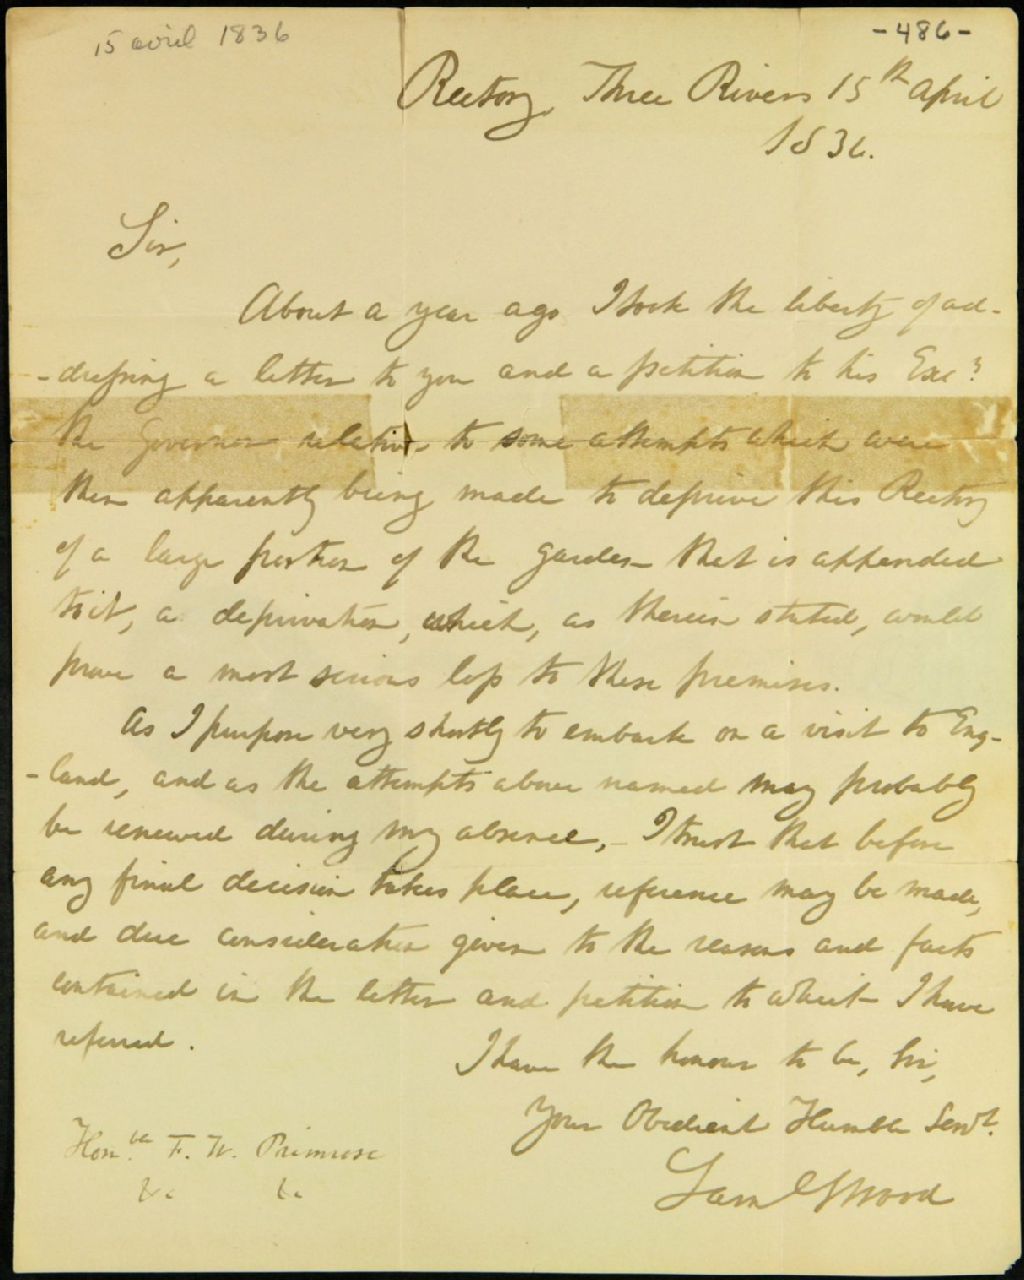 15 avril 1836
-486-
Rectory, Three Rivers 15th April
1836.
Sir,
About a year ago I took the liberty of ad-
-dressing a letter to you and a petition to his Excy
the Governor relative to some attempts which were
then apparently being made to deprive this Rectory
of a large portion of the garden that is appended
to it, a deprivation, which, as therein stated, would
prove a most serious loss to these premises.
As I purpose very shortly to embark on a visit to Eng-
-land, and as the attempts above named may probably
be renewed during my absence, - I trust that before
any final decision takes place, reference may be made,
and due consideration given to the reasons and facts
contained in the letter and petition to which I have
referred.
I have the honour to be, Sir,
Your Obedient Humble Servt.
Honble F. W. Primrose
&c &c
Saml S Wood